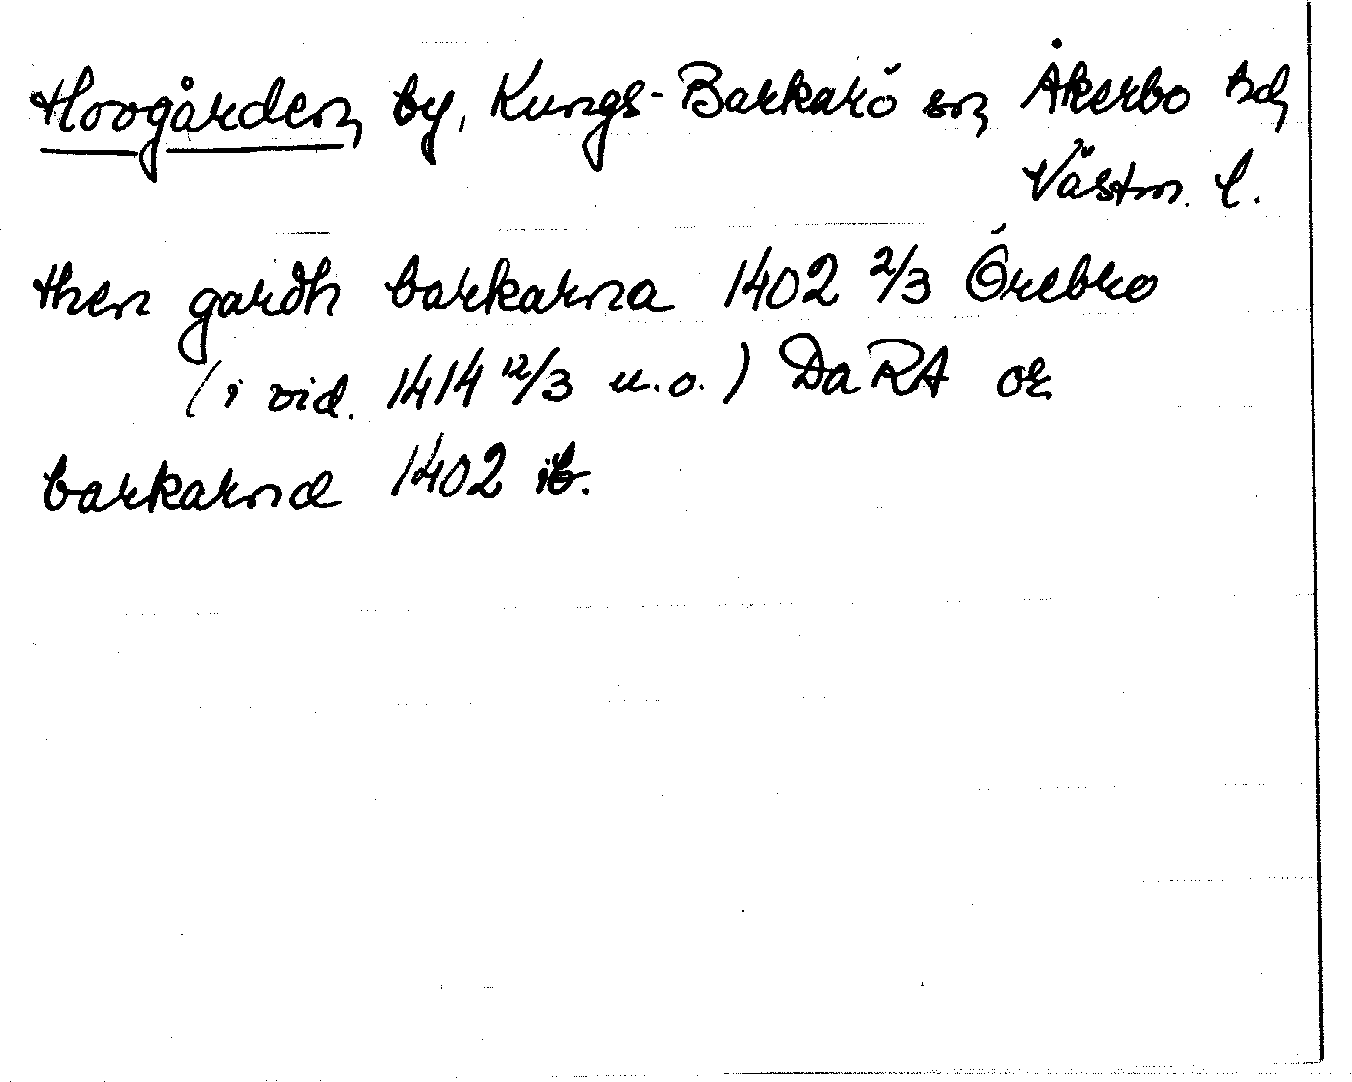 Hovgården by, Kungs-Barkarö sn, Åkerbo hd,
Västm. l.
then gardh barkarna 1402 2/3 Örebro
(i vid. 1414 12/3 u.o.) DaRA or
barkarna 1402 ib.